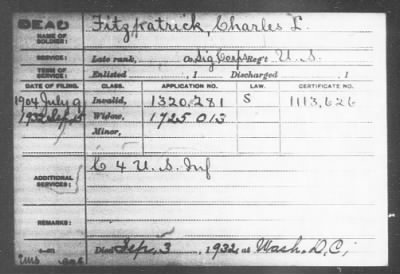 DEAD Fitzpatrick, Charles L.
NAME OF SOLDIER:
SERVICE: Late rank, Co. Sig Corps Reg't U. S.
TERM OF SERVICE: Enlisted , 1 Discharged , 1
DATE OF FILING. CLASS. APPLICATION NO. LAW. CERTIFICATE NO.
1904 July 9 Invalid, 1320,281 S 1113,626
1932 Sep. 15 Widow, 1725013
Minor,
ADDITIONAL SERVICES: C 4 U. S. Inf
REMARKS:
Died Sep. 3, 1932, at Wash. D. C.;